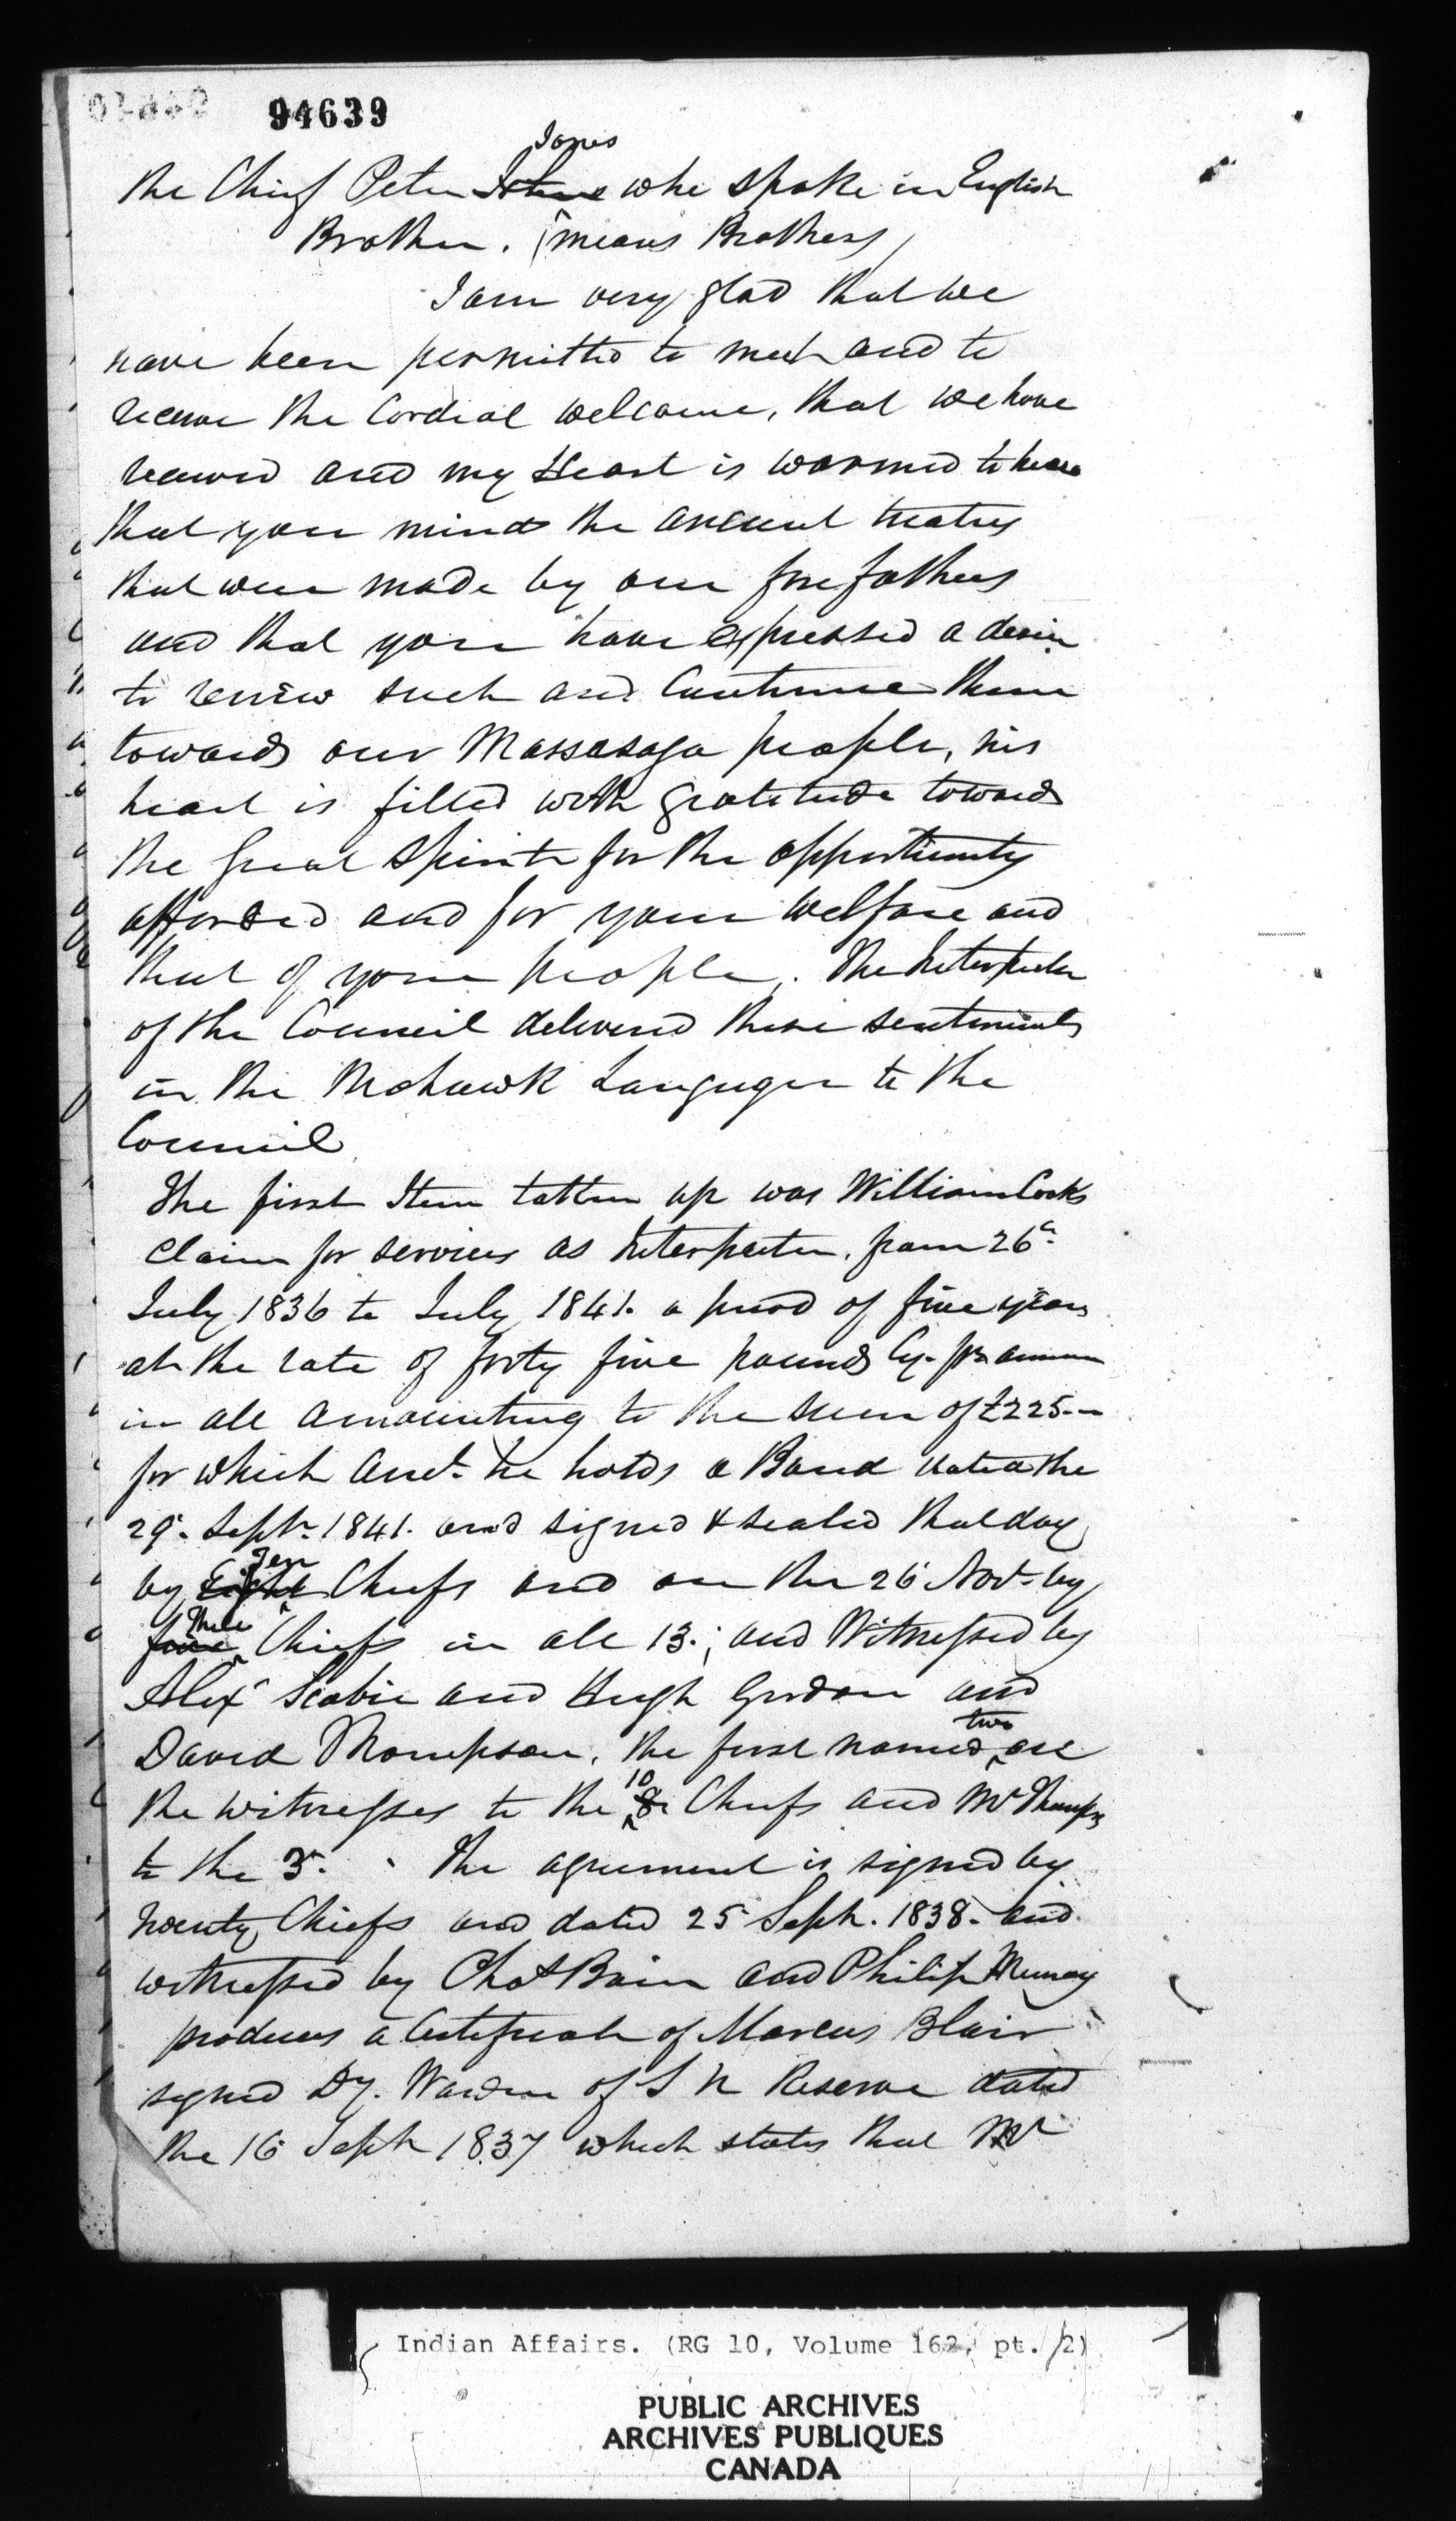 94639
Jones
the Chief Peter Johns who spoke in English
Brother. (means Brothers)
I am very glad that we
have been permitted to meet and to
receive the Cordial welcome, that we have
received and my Heart is warmed to hear
that you mind the ancient treatys
that were made by our forefathers
and that you have expressed a desire
to renew such and Continue them
towards our Massasaga people, his
heart is filled with gratitude towards
the great Spirit for the opportunity
afforded and for your welfare and
that of your people. The Interpreter
of the Council delivered these sentiments
in the Mohawk Language to the
Council
The first Item taken up was William Cooks
Claim for services as Interpreter. from 26th
July 1836 to July 1841. a period of five years
at the rate of forty five pounds Cy. pr annum
in all amounting to the sum of £225.—
for which Amt. he holds a Bond dated the
29th Sept. 1841. and signed & sealed that day
Ten
by Eight Chiefs and on the 26 Novr. by
Three
five Chiefs in all 13.; and Witnessed by
Alexr Scobie and Hugh Gordon and
two
David Thompson, the first named are
10
the witnesses to the 8 Chiefs and Mr Thompson
to the 3. The agreement is signed by
twenty Chiefs and dated 25 Sept. 1838. and
witnessed by Chas Bain and Philip Murray
produces a Certificate of Marcus Blair
signed Dy. Warden of S N Reserve dated
the 16 Sept 1837 which states that Mr
Indian Affairs. (RG 10, Volume 162, pt. 2)
PUBLIC ARCHIVES
ARCHIVES PUBLIQUES
CANADA